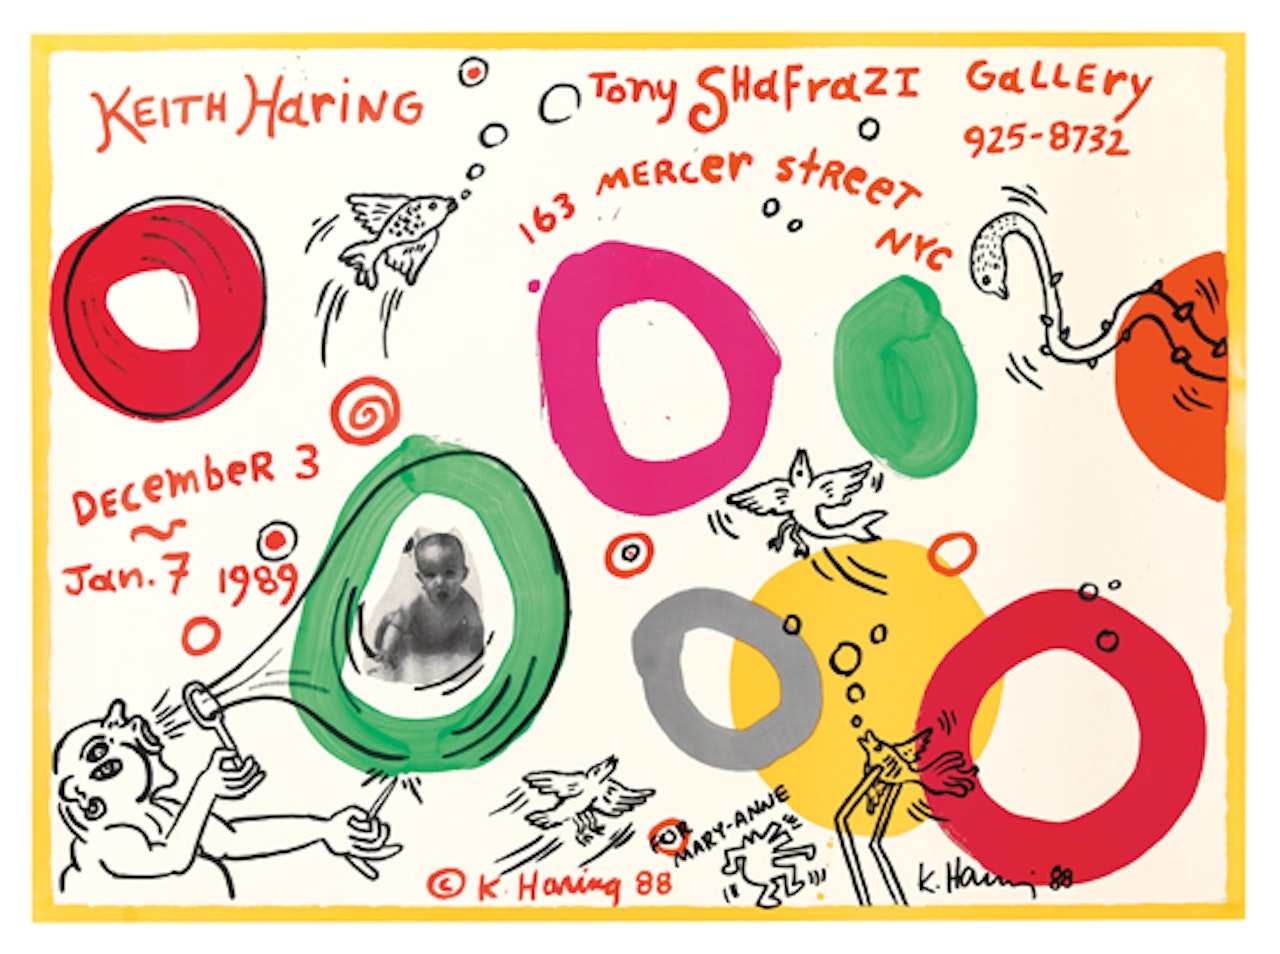 KEITH HARING
TONY SHAFRAZI GALLERY
925-8732
163 MERCER STREET
NYC
DECEMBER 3
~
Jan. 7 1989
FOR
MARY-ANNE
© K. Haring 88
K. Haring 88